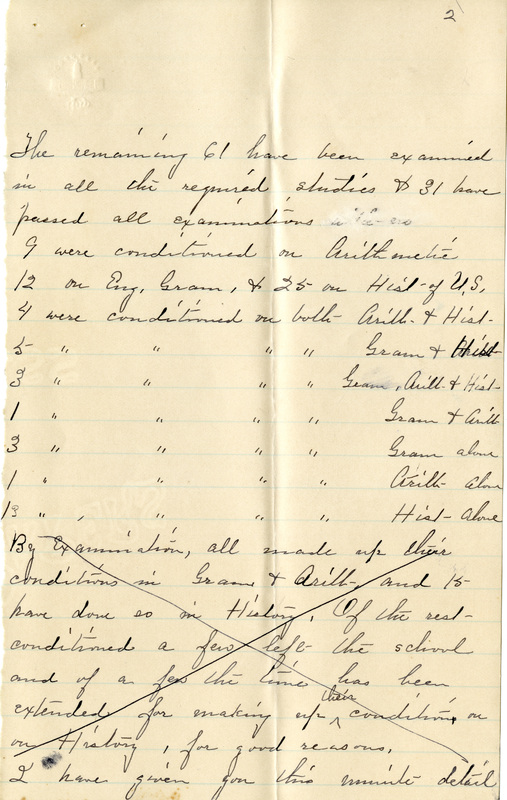 2
The remaining 61 have been examined
in all the required studies & 31 have
passed all examinations
9 were conditioned on Arithmetic
12 on Eng. Gram, & 25 on Hist- of U.S,
4 were conditioned on both- Arith- & Hist-
5 " " " " Gram & Hist-
3 " " " " Gram, Arith- & Hist-
1 " " " " Gram & Arith
3 " " " " Gram alone
1 " " " " Arith- alone
13 " " " " Hist- alone
By Examination, all made up their
conditions in Gram & Arith- and 15
have done so in History, Of the rest-
conditioned a few left the school
and of a few the time has been
extended for making up their conditions on
on History, for good reasons,
I have given you this minute detail